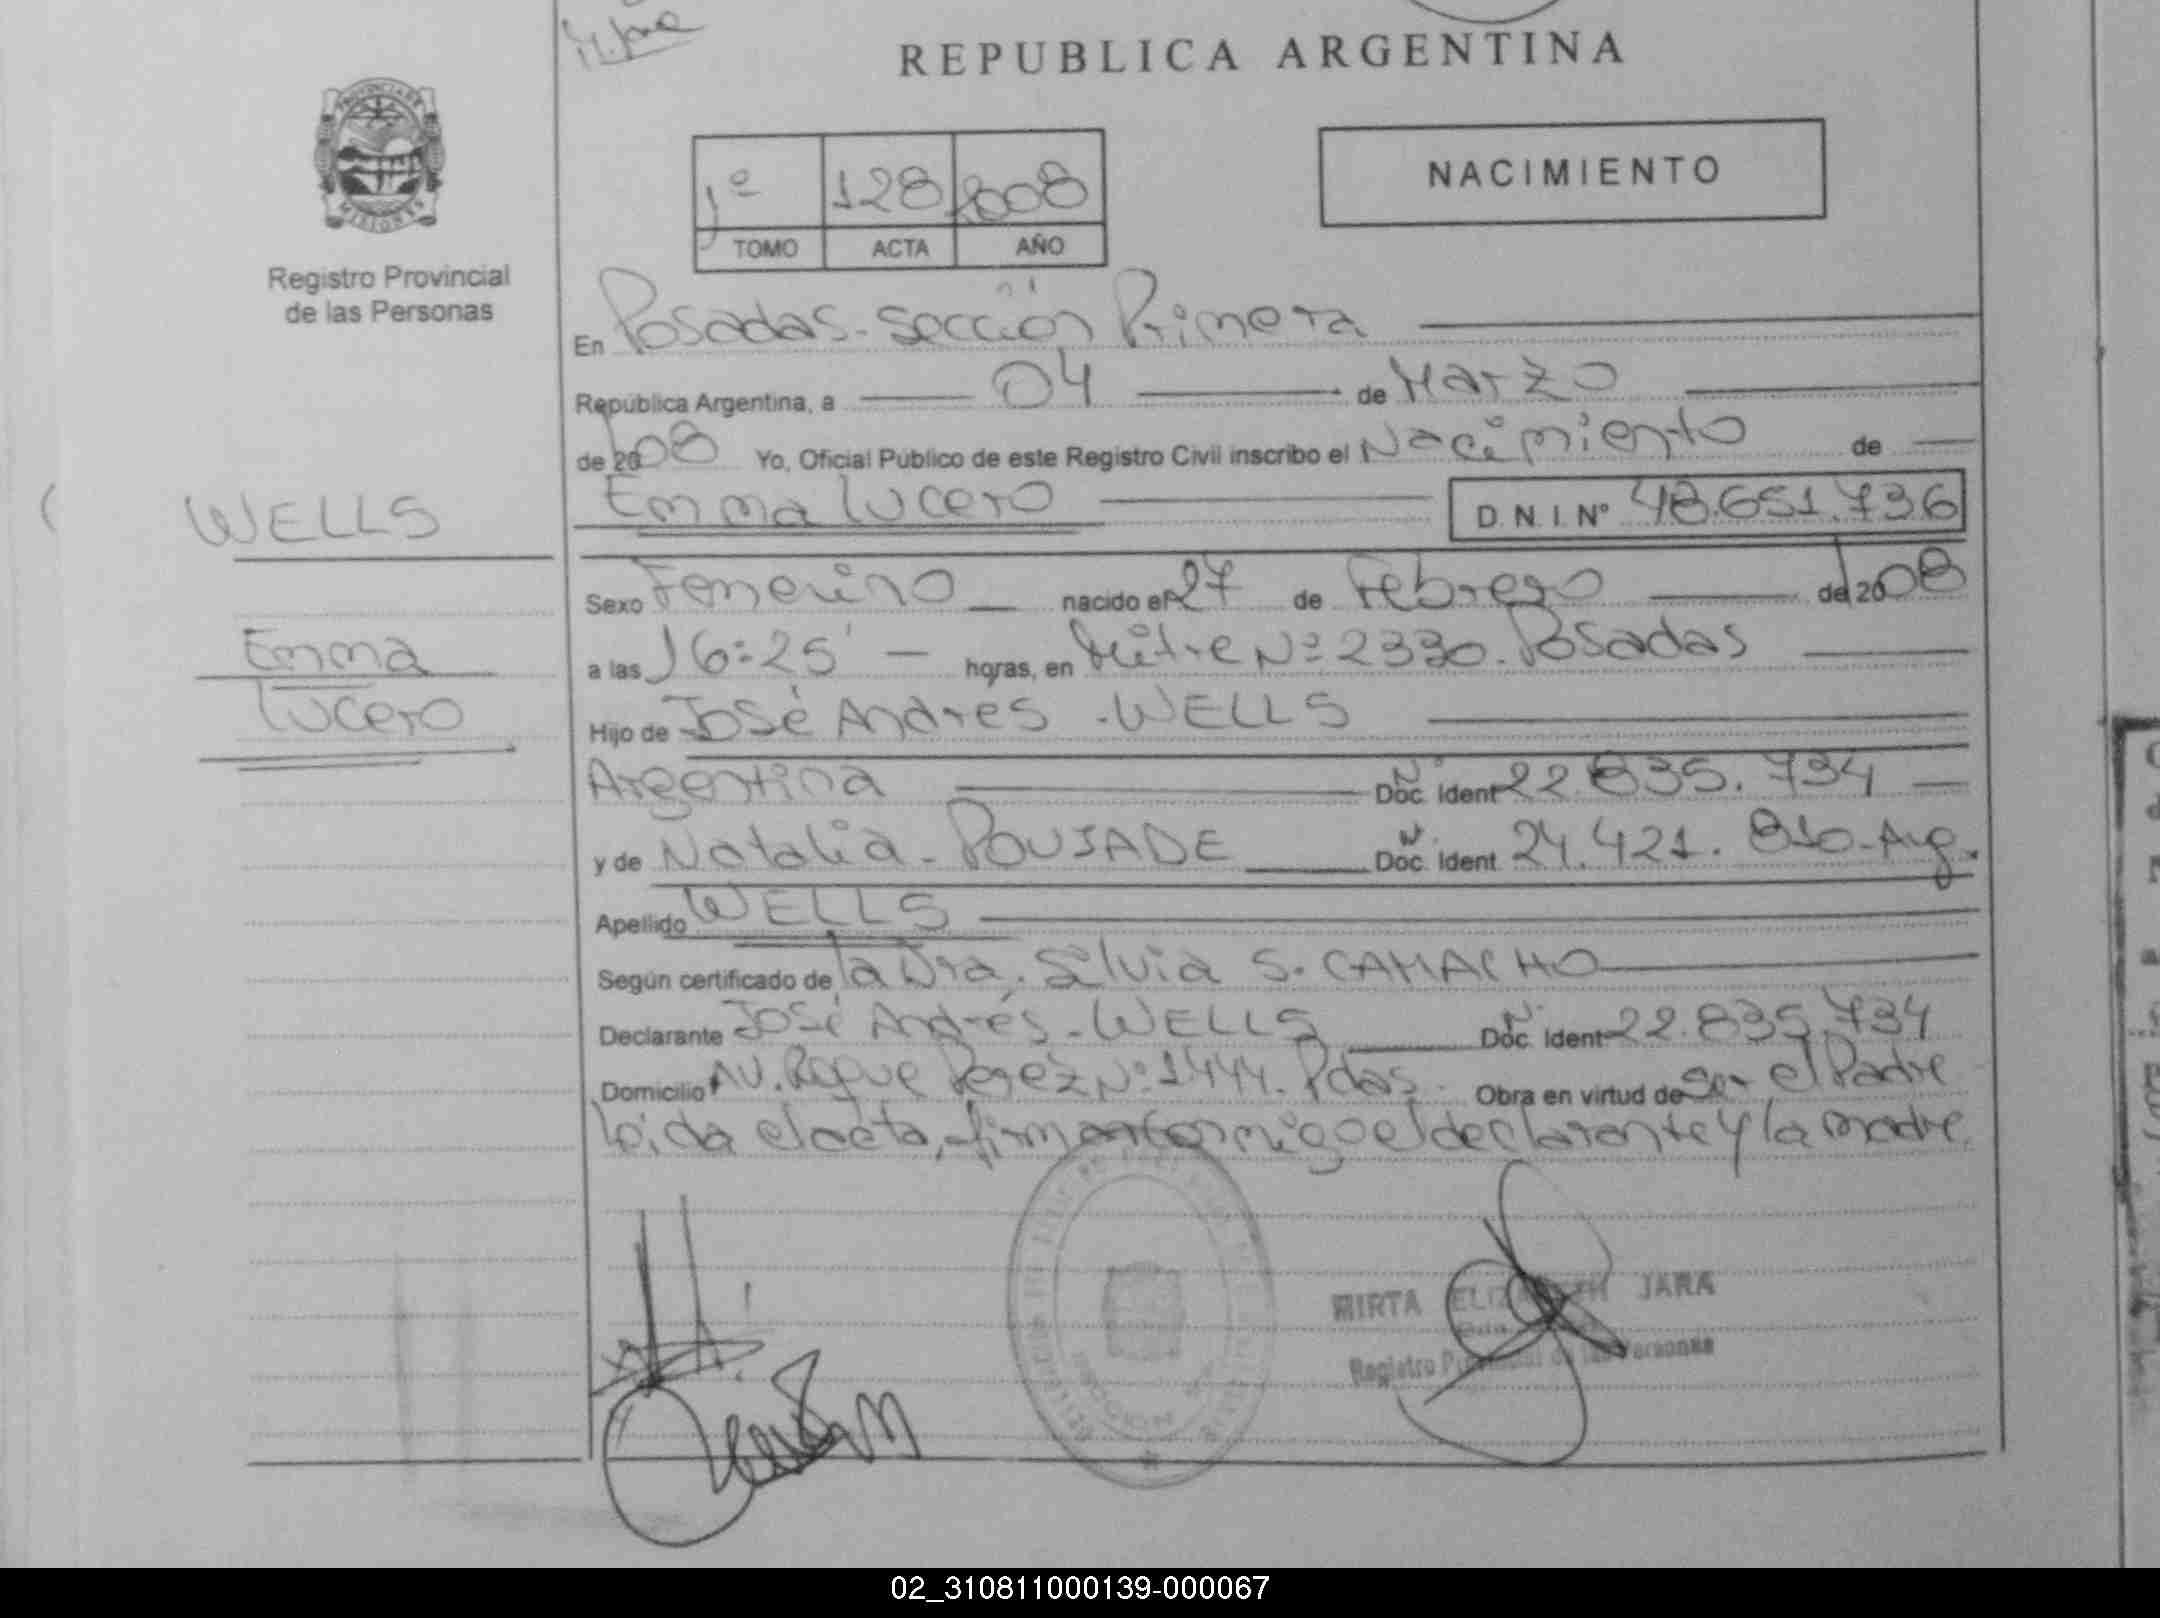 REPUBLICA ARGENTINA
PROVINCIA DE
MISIONES
Registro Provincial
de las Personas
1º 128 2008
TOMO ACTA AÑO
NACIMIENTO
En Posadas - Sección Primera
República Argentina, a 04 de Marzo
de 2008 Yo, Oficial Público de este Registro Civil inscribo el Nacimiento de
Emma Lucero D.N.I. Nº 48.651.736
WELLS
Emma
Lucero
Sexo Femenino nacido el 27 de Febrero de 2008
a las 16:25' horas, en Mitre Nº 2330. Posadas
Hijo de José Andres - WELLS
Argentina Nº Doc. Ident 22.835.734
y de Natalia - POUJADE Nº Doc. Ident. 24.421.810-Arg.
Apellido WELLS
Según certificado de la Dra. Silvia S. CAMACHO
Declarante José Andrés - WELLS Nº Doc. Ident 22.835.734
Domicilio AV. Roque Perez Nº 1444. Pdas. Obra en virtud de Ser el Padre
leida el acta, firman conmigo el declarante y la madre.
MIRTA ELIZABETH JARA
Registro Provincial de las Personas
02_310811000139-000067